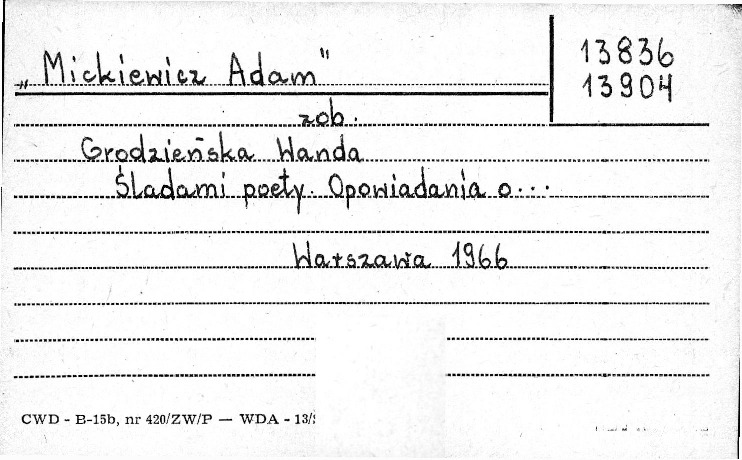 „Mickiewicz Adam"
13836
13904
zob.
Grodzieńska Wanda
Śladami poety. Opowiadania o...
Warszawa 1966
CWD - B-15b, nr 420/ZW/P — WDA - 13/